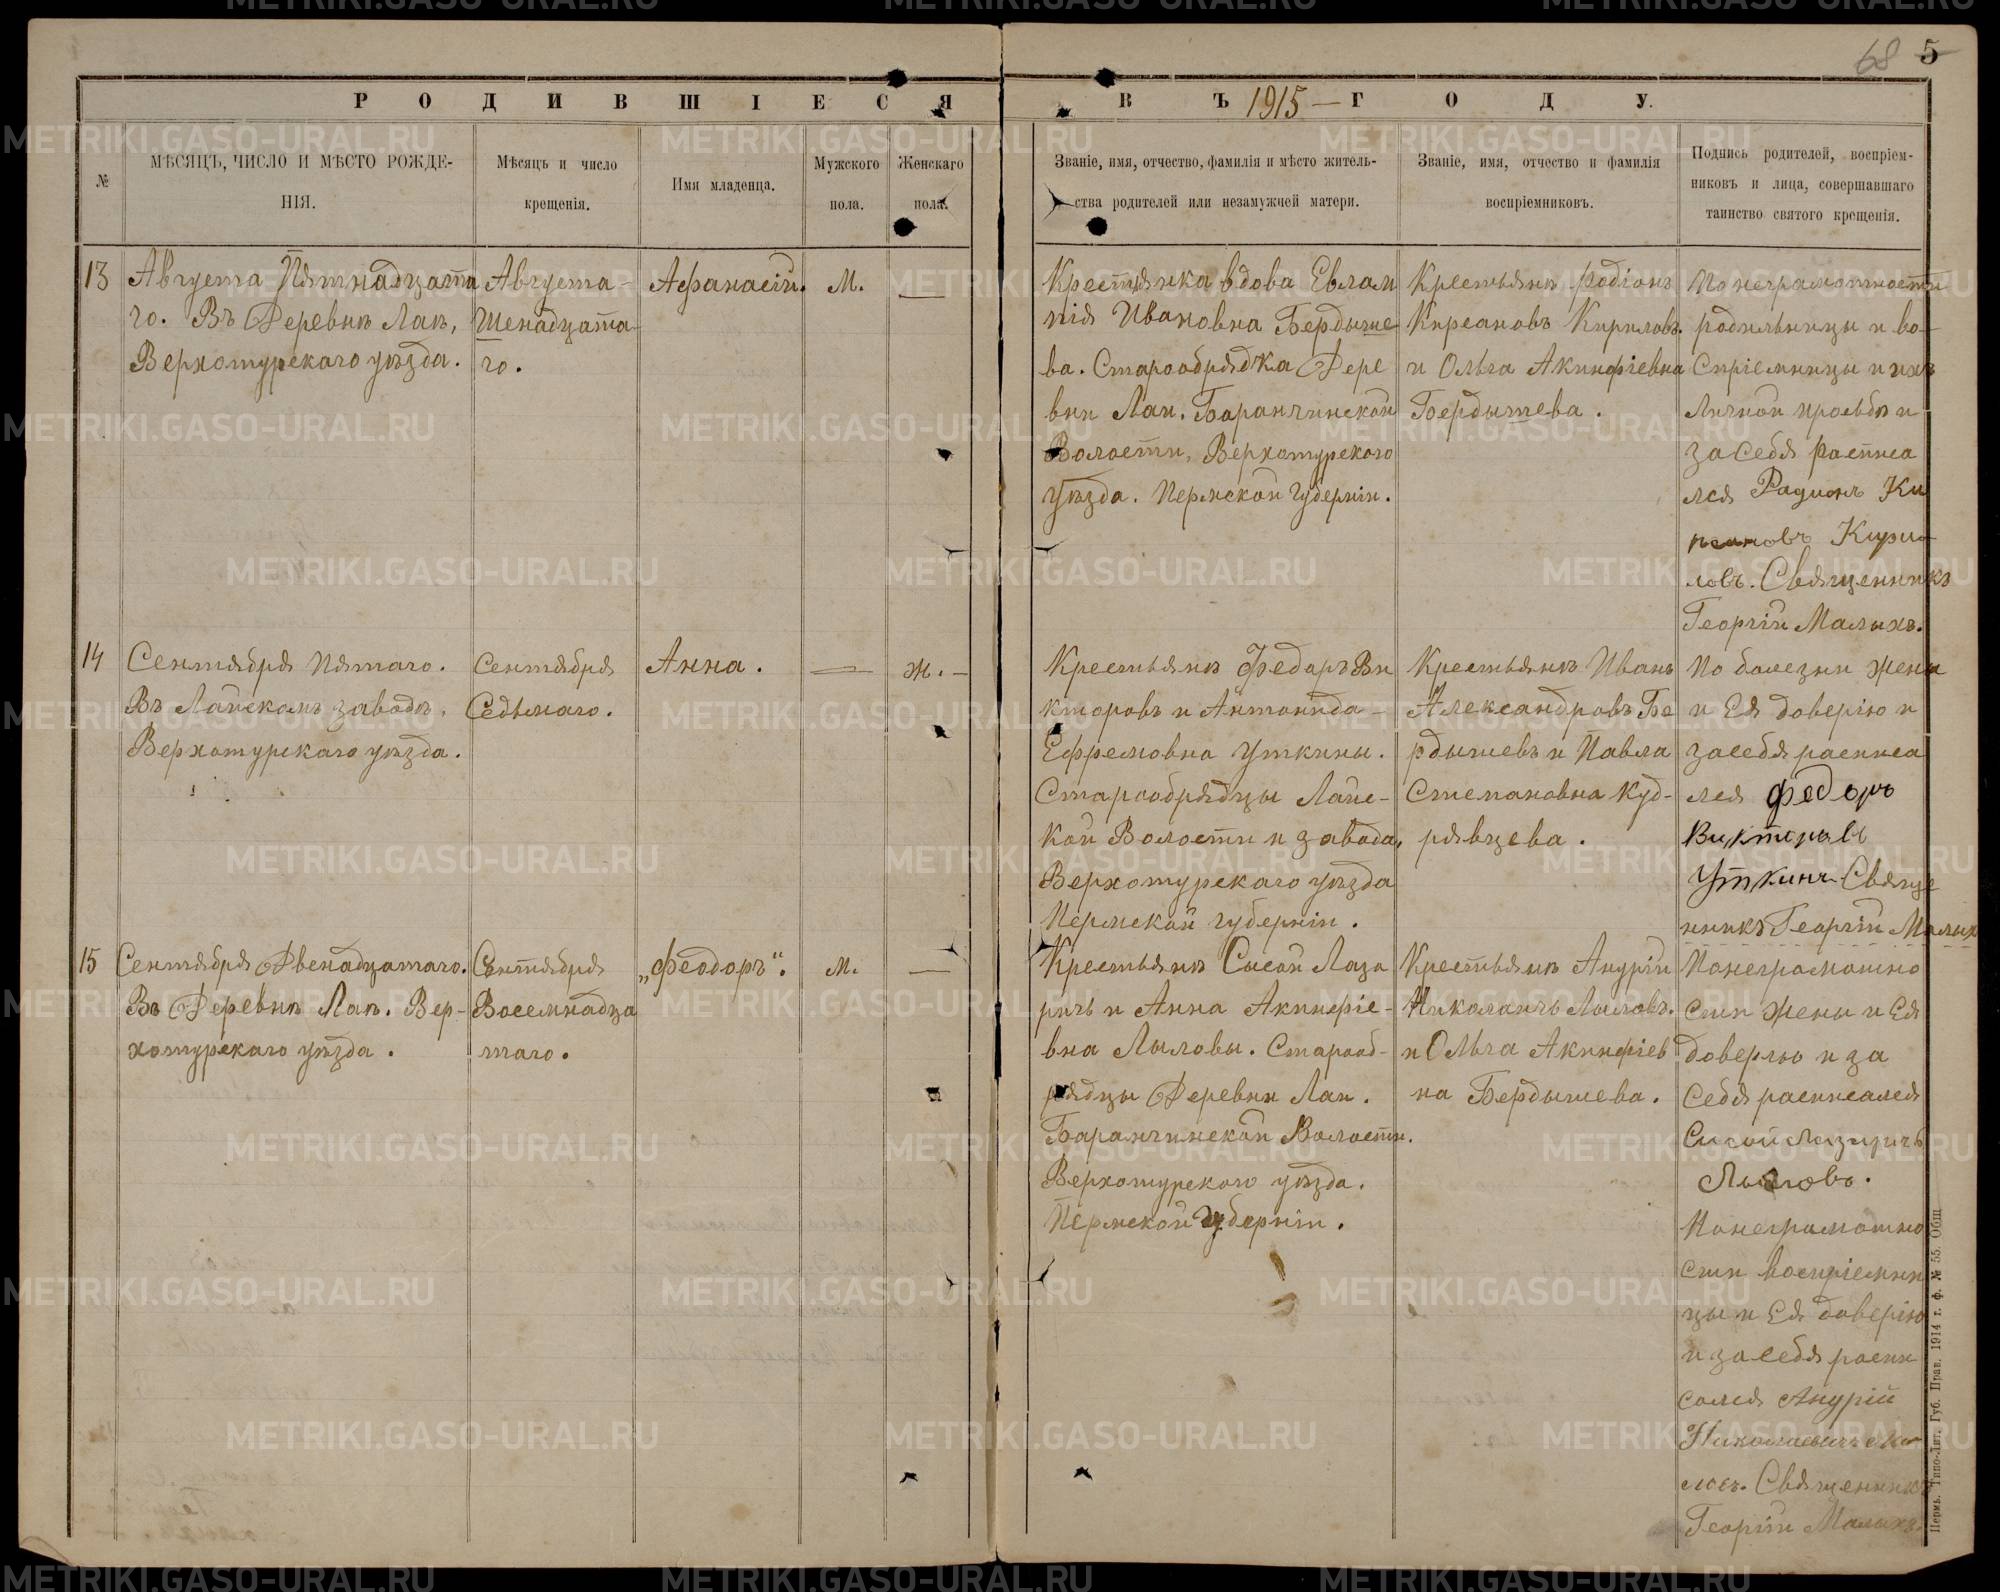 68 5
РОДИВШІЕСЯ ВЪ 1915 — ГОДУ.
№
МѢСЯЦЪ, ЧИСЛО И МѢСТО РОЖДЕ-
НІЯ.
Мѣсяцъ и число
крещенія.
Имя младенца.
Мужского
пола.
Женскаго
пола.
Званіе, имя, отчество, фамилія и мѣсто житель-
ства родителей или незамужней матери.
Званіе, имя, отчество и фамилія
воспріемниковъ.
Подпись родителей, воспріем-
никовъ и лица, совершавшаго
таинство святого крещенія.
13
Августа Пятнадцата
го. Въ Деревнѣ Лаѣ,
Верхотурскаго уѣзда.
Августа-
Шенадцата-
го.
Афанасій.
М.
—
Крестьянка вдова Евлам
пія Ивановна Бердыше
ва. Старообрядка Дере
вни Лаи. Баранчинской
Волости, Верхотурскаго
Уѣзда. Пермской Губерніи.
Крестьянъ Родіонъ
Кирсановъ Кириловъ.
и Ольга Акинфіевна
Бердышева.
По неграмотности
родильницы и во-
спріемницы и ихъ
Личной прозьбѣ и
за себя росписа
лся Радионъ Ки
рсановъ Кири-
ловъ. Священникъ
Георгій Малыхъ.
14
Сентября Пятаго.
Въ Лайскомъ заводѣ,
Верхотурскаго уѣзда.
Сентября
Седьмаго.
Анна.
—
Ж. -
Крестьянъ Федоръ Ви
кторовъ и Антонида-
Ефремовна Уткины.
Старообрядцы Лайс-
кой Волости и завода,
Верхотурскаго уѣзда
Пермской губерніи.
Крестьянъ Иванъ
Александровъ Бе
рдышевъ и Павла
Степановна Куд-
рявцева.
По болезни жены
и Ея доверію и
за себя расписа
лся Федоръ
Викторавъ
Уткинъ Свяще
нникъ Георгій Малых
15
Сентября Двенадцатаго.
Въ Деревнѣ Лаѣ. Вер-
хотурскаго уѣзда.
Сентября
Восемнадца
таго.
„Феодоръ“.
М.
—
Крестьянъ Сысой Лаза
ричъ и Анна Акинфіе-
вна Лыловы. Старооб-
рядцы Деревни Лаи.
Баранчинской Волости.
Верхотурскаго уѣзда.
Пермской Губерніи.
Крестьянъ Андрій
Николаичъ Лыловъ.
и Ольга Акинфіев
на Бердышева.
Понеграмотно
сти жены и Ея
доверію и за
Себя расписался
Сысой Лазаричъ
Лыловъ.
Понеграмотно
сти воспріемни
цы и Ея доверію
и за себя распи
сался Андрій
Николаевичъ Лы
ловъ. Священникъ
Георгій Малыхъ.
Пермь. Типо-Лит. Губ. Прав. 1914 г. ф. № 55. Общ
METRIKI.GASO-URAL.RU